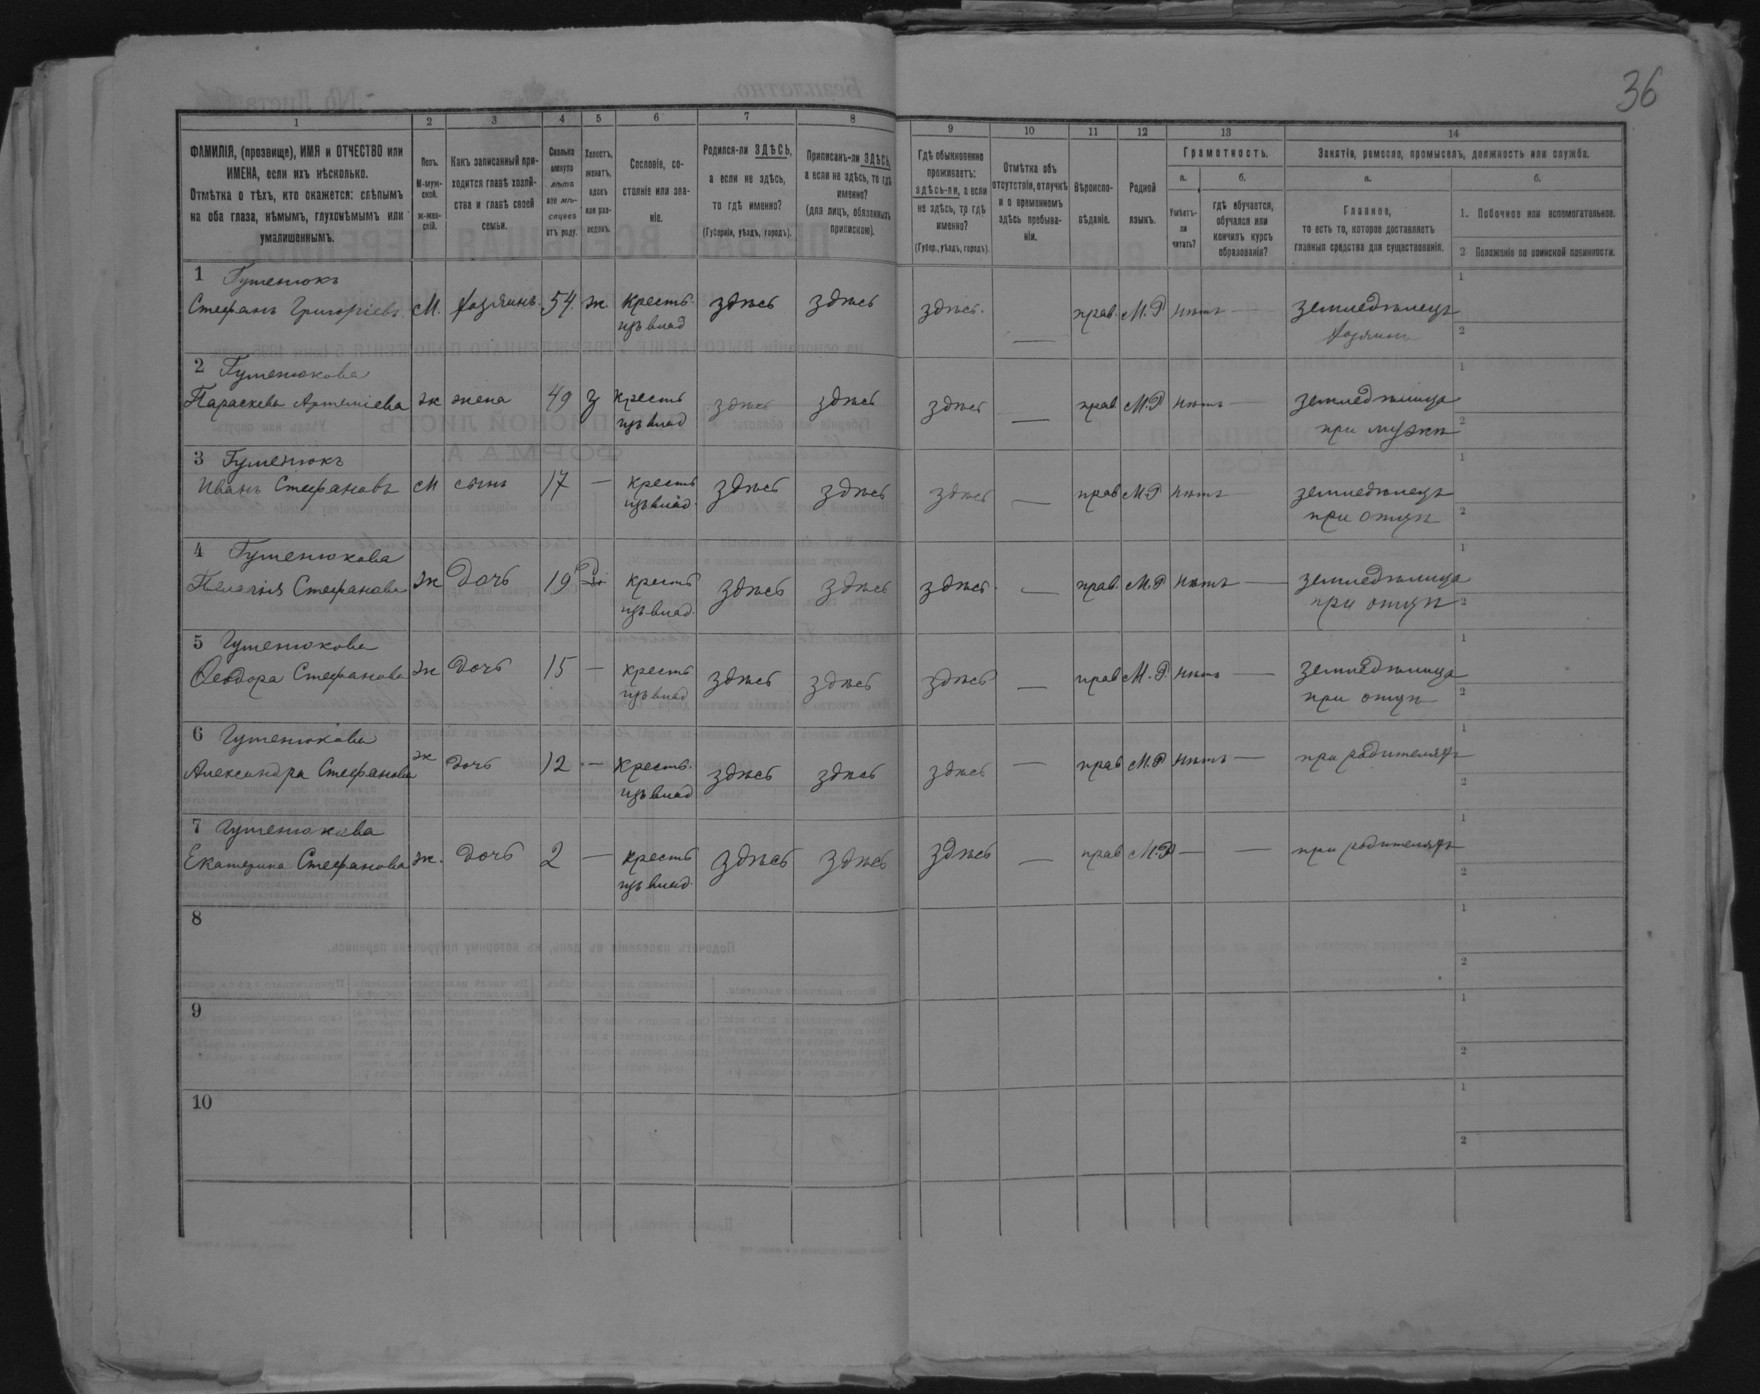 36
1 2 3 4 5 6 7 8 9 10 11 12 13 14
ФАМИЛІЯ, (прозвище), ИМЯ и ОТЧЕСТВО или
ИМЕНА, если ихъ нѣсколько.
Отмѣтка о тѣхъ, кто окажется: слѣпымъ
на оба глаза, нѣмымъ, глухонѣмымъ или
умалишеннымъ.
Полъ.
М-муж-
ской.
ж-жен-
скій.
Какъ записанный при-
ходится главѣ хозяй-
ства и главѣ своей
семьи.
Сколько
минуло
лѣтъ
или мѣ-
сяцевъ
отъ роду.
Холостъ,
женатъ,
вдовъ
или раз-
веденъ.
Сословіе, со-
стояніе или зва-
ніе.
Родился-ли ЗДѢСЬ,
а если не здѣсь,
то гдѣ именно?
(Губернія, уѣздъ, городъ).
Приписанъ-ли ЗДѢСЬ,
а если не здѣсь, то гдѣ
именно?
(для лицъ, обязанныхъ
припискою).
Гдѣ обыкновенно
проживаетъ:
здѣсь-ли, а если
не здѣсь, то гдѣ
именно?
(Губер., уѣздъ, городъ).
Отмѣтка объ
отсутствіи, отлучкѣ
и о временномъ
здѣсь пребыва-
ніи.
Вѣроиспо-
вѣданіе.
Родной
языкъ.
Грамотность.
а.
Умѣетъ-
ли
читать?
б.
гдѣ обучается,
обучался или
кончилъ курсъ
образованія?
Занятіе, ремесло, промыселъ, должность или служба.
а.
Главное,
то есть то, которое доставляетъ
главныя средства для существованія.
б.
1. Побочное или вспомогательное.
2 Положеніе по воинской повинности.
1 Гуменюкъ
Стефанъ Григоріевъ М. хозяинъ 54 ж. крестъ. здѣсь здѣсь здѣсь. — прав. М.Р нѣтъ — землѣделецъ 1
изъ влад хозяинъ 2
2 Гуменюкова
Параскева Артеміева ж жена 49 з крестъ здѣсь здѣсь здѣсь — прав М.Р нѣтъ — земледѣлица 1
изъ влад при мужѣ 2
3 Гуменюкъ
Иванъ Стефановъ М сынъ 17 — крестъ здѣсь здѣсь здѣсь — прав М.Р нѣтъ — земледѣлецъ 1
изъ влад. при отцѣ 2
4 Гуменюкова
Пелагія Стефанова ж дочь 19 крестъ здѣсь здѣсь здѣсь. — прав. М.Р нѣтъ — земледѣлица 1
изъ влад. при отцѣ 2
5 Гуменюкова
Ѳеодора Стефанова ж дочь 15 — крестъ здѣсь здѣсь здѣсь — прав М.Р. нѣтъ — земледѣлица 1
изъ влад при отцѣ 2
6 Гуменюкова
Александра Стефанова ж дочь 12 — крестъ. здѣсь здѣсь здѣсь — прав М.Р нѣтъ — при родителяхъ 1
изъ влад 2
7 Гуменюкова
Екатерина Стефанова ж. дочь 2 — крестъ здѣсь здѣсь здѣсь — прав М.Р — — при родителяхъ 1
изъ влад. 2
8 1
2
9 1
2
10 1
2